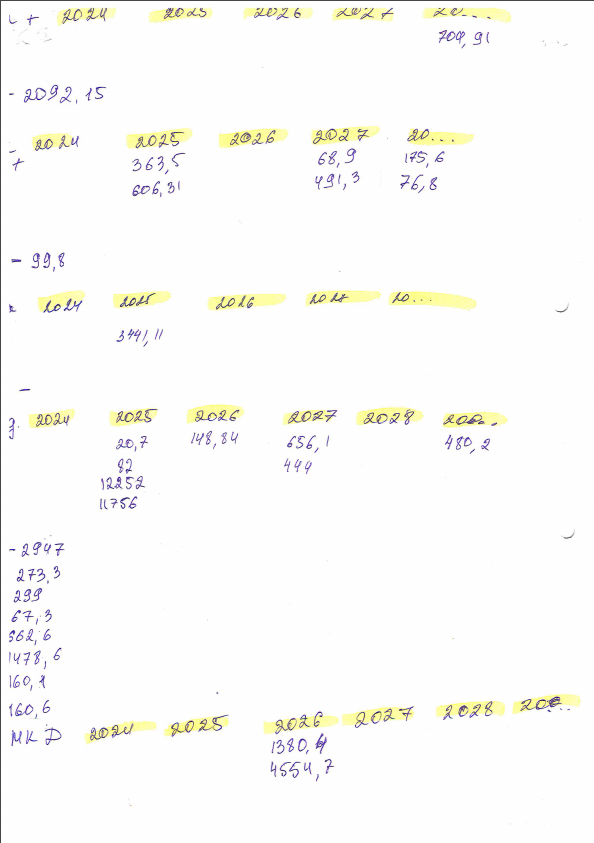 + 2024 2025 2026 2027 20...
709,91
- 2092,15
- 2024 2025 2026 2027 20...
+ 363,5 68,9 175,6
606,31 491,3 76,8
- 99,8
2024 2025 2026 2027 20...
3441,11
-
2024 2025 2026 2027 2028 20...
20,7 148,84 656,1 480,2
82 444
12252
11756
- 2947
273,3
299
67,3
362,6
1478,6
160,1
160,6
МКД 2024 2025 2026 2027 2028 20...
1380,4
4554,7